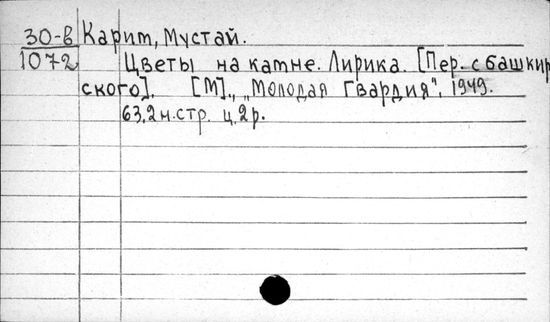 30-в Карит, Мустай.
1072 Цветы на катне. Лирика. [Пер. с башкир
ского]. [М]., "Молодая Гвардия", 1949.
63,2 н. стр. ц. 2 р.